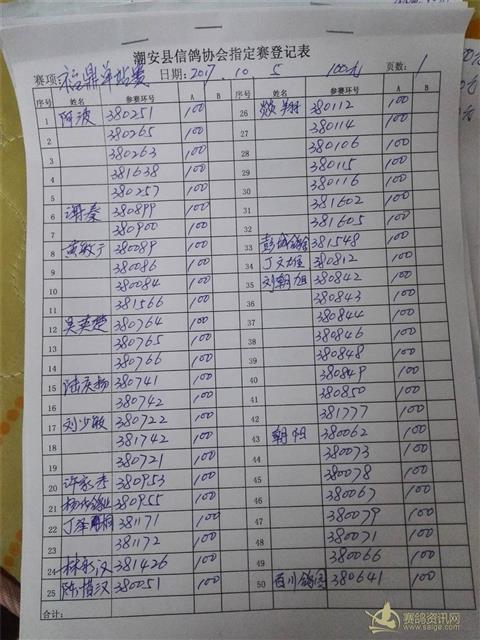 潮安县信鸽协会指定赛登记表
赛项: 福鼎单站赛 日期: 2017 . 10 . 5 100元 页数: 1
序号 姓名 参赛环号 A B 序号 姓名 参赛环号 A B
1 阿波 380251 100 26 焱翔 380112 100
2 380265 100 27 380114 100
3 380263 100 28 380106 100
4 381638 100 29 380115 100
5 380257 100 30 380116 100
6 谢秦 380899 100 31 381602 100
7 380900 100 32 381605 100
8 黄敦宁 380089 100 33 彭城鸽舍 381548 100
9 380086 100 34 丁文雄 380812 100
10 380084 100 35 刘朝旭 380842 100
11 381566 100 36 380843 100
12 吴奕楚 380764 100 37 380844 100
13 380765 100 38 380846 100
14 380766 100 39 380848 100
15 陆庆扬 380741 100 40 380849 100
16 380742 100 41 380850 100
17 刘少敏 380722 100 42 381777 100
18 381742 100 43 朝阳 380062 100
19 380721 100 44 380073 100
20 许家杰 380953 100 45 380078 100
21 380955 100 46 380067 100
22 381171 100 47 380079 100
23 381172 100 48 380071 100
24 381426 100 49 380066 100
25 陈惜汉 380051 100 50 西川鸽舍 380641 100
合计:
赛鸽资讯网
www.saige.com